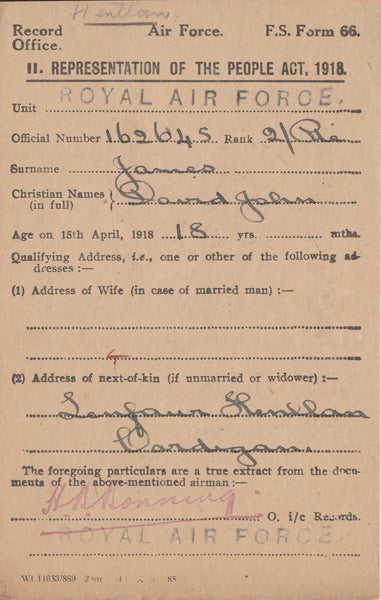 Henllan.
Record Air Force. F.S. Form 66.
Office.
II. REPRESENTATION OF THE PEOPLE ACT, 1918.
Unit ROYAL AIR FORCE.
Official Number 162645 Rank 2/Pte
Surname James
Christian Names } David John
(in full)
Age on 15th April, 1918 18 yrs. mths.
Qualifying Address, i.e., one or other of the following ad-
dresses :—
(1) Address of Wife (in case of married man) :—
(2) Address of next-of-kin (if unmarried or widower) :—
Henllan
Cardigan.
The foregoing particulars are a true extract from the docu-
ments of the above-mentioned airman :—
O. i/c Records.
ROYAL AIR FORCE.
Wt 11653/889 85